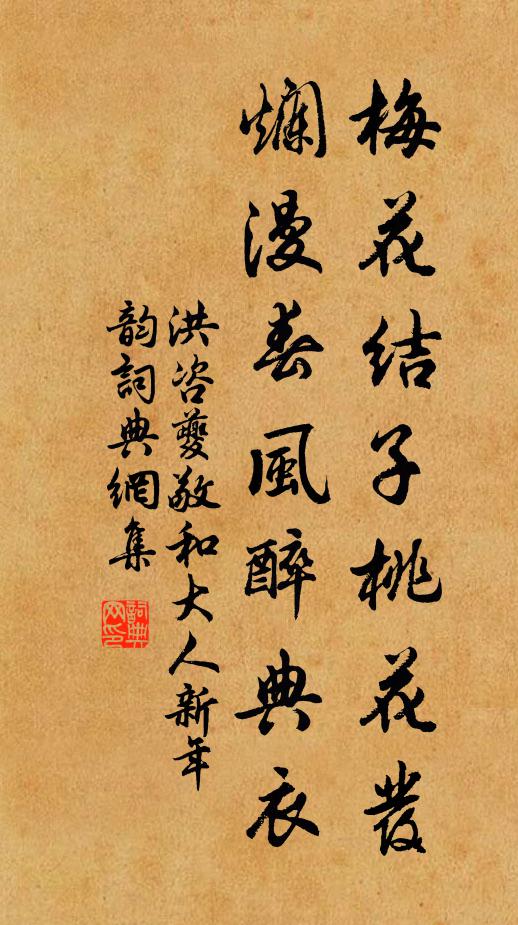 梅花結子桃花發
爛漫春風醉典衣
洪咨夔敬和大人新年
韵詞典網集
詞典網印